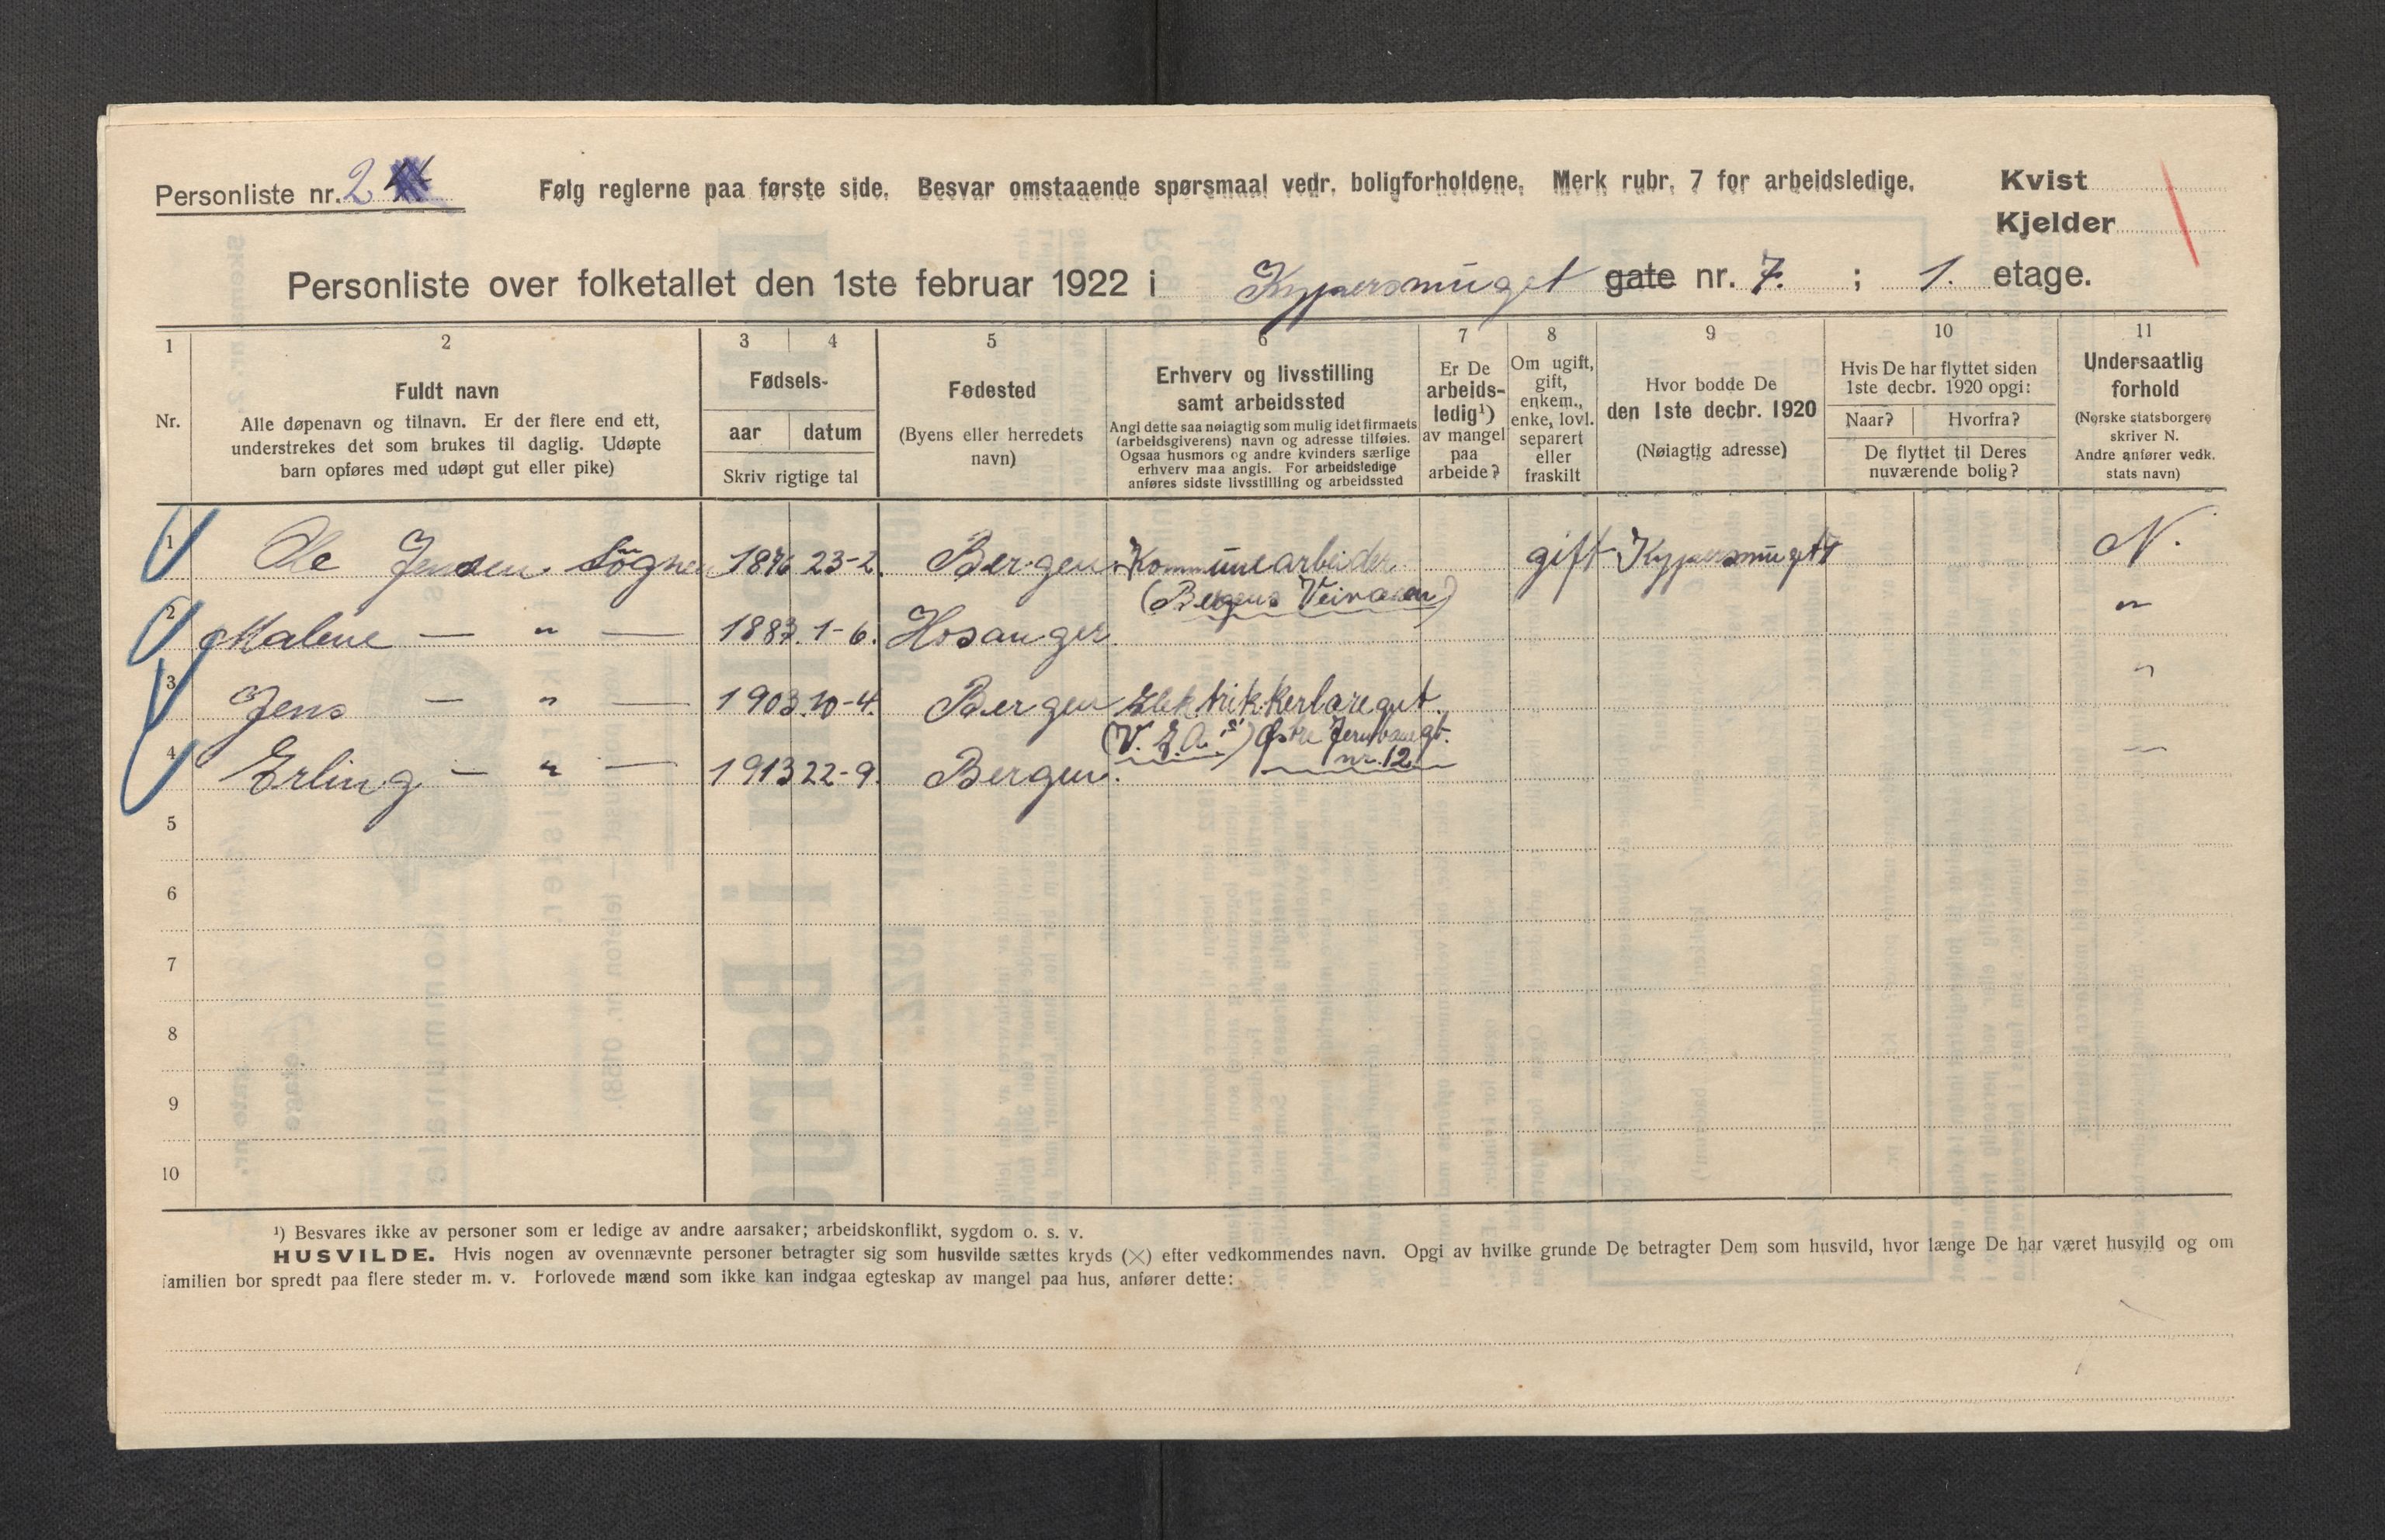 Personliste nr. 2 Følg reglerne paa første side. Besvar omstaaende spørsmaal vedr. boligforholdene. Merk rubr. 7 for arbeidsledige. Kvist
Kjelder
Personliste over folketallet den 1ste februar 1922 i Kyppersmuget gate nr. 7. ; 1. etage.
1 2 3 4 5 6 7 8 9 10 11
Nr.
Fuldt navn
Alle døpenavn og tilnavn. Er der flere end ett,
understrekes det som brukes til daglig. Udøpte
barn opføres med udøpt gut eller pike)
Fødsels-
aar datum
Skriv rigtige tal
Fødested
(Byens eller herredets
navn)
Erhverv og livsstilling
samt arbeidssted
Angi dette saa nøiagtig som mulig idet firmaets
(arbeidsgiverens) navn og adresse tilføies.
Ogsaa husmors og andre kvinders særlige
erhverv maa angis. For arbeidsledige
anføres sidste livsstilling og arbeidssted
Er De
arbeids-
ledig¹)
av mangel
paa
arbeide?
Om ugift,
gift,
enkem.,
enke, lovl.
separert
eller
fraskilt
Hvor bodde De
den 1ste decbr. 1920
(Nøiagtig adresse)
Hvis De har flyttet siden
1ste decbr. 1920 opgi:
Naar? Hvorfra?
De flyttet til Deres
nuværende bolig?
Undersaatlig
forhold
(Norske statsborgere
skriver N.
Andre anfører vedk.
stats navn)
1 Ole Jensen Søgnen 1876 23-2. Bergen Kommunearbeider gift Kyppersmuget 7 N.
(Bergens Veivæsen)
2 Malene — " — 1883. 1-6. Hosanger "
3 Jens — " — 1903. 10-4. Bergen Elektrikkerlæregut. "
(V. E. A/S) Østre Jernbanegt.
nr. 12
4 Erling — " — 1913 22-9. Bergen. —
5
6
7
8
9
10
¹) Besvares ikke av personer som er ledige av andre aarsaker; arbeidskonflikt, sygdom o. s. v.
HUSVILDE. Hvis nogen av ovennævnte personer betragter sig som husvilde sættes kryds (×) efter vedkommendes navn. Opgi av hvilke grunde De betragter Dem som husvild, hvor længe De har været husvild og om
familien bor spredt paa flere steder m. v. Forlovede mænd som ikke kan indgaa egteskap av mangel paa hus, anfører dette: